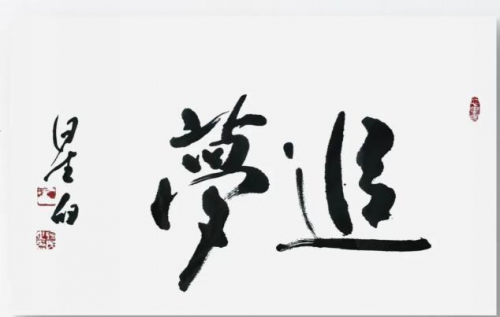 追夢
星白